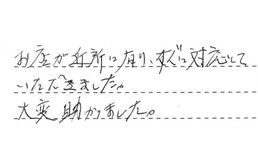 お店が近所に在り、すぐに対応して
いただきました。
大変助かりました。